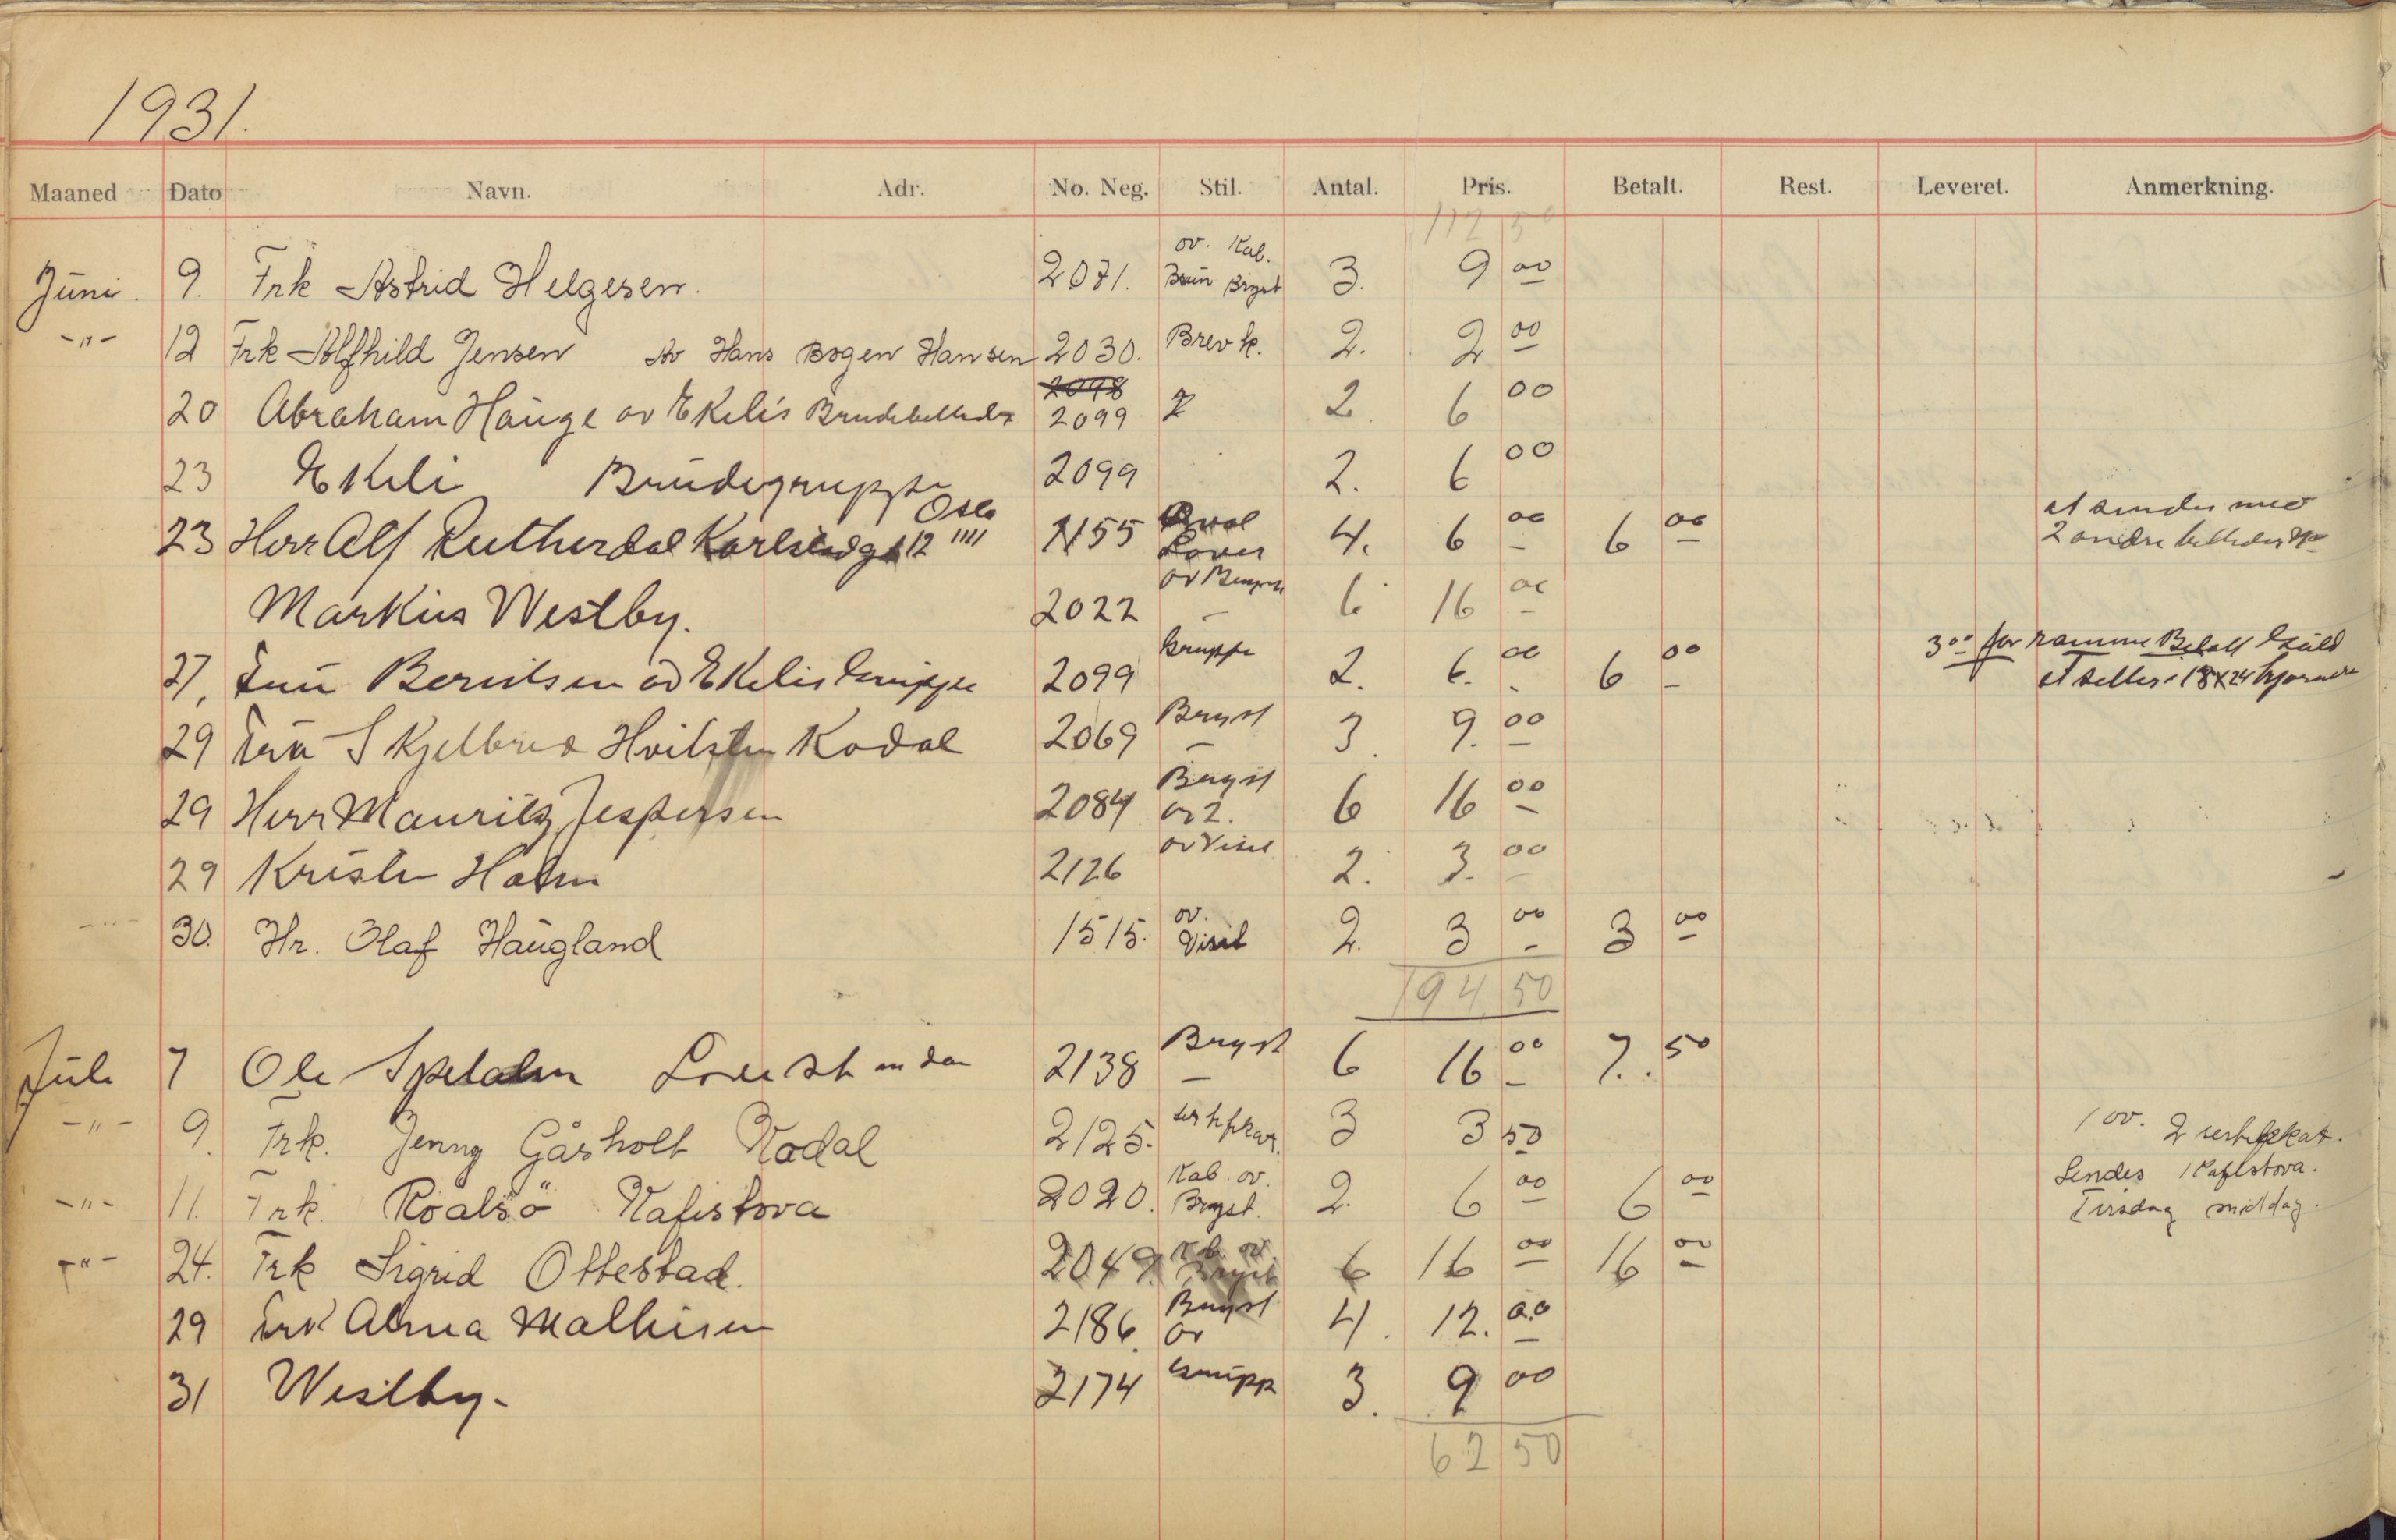 1931.
Maaned Dato Navn. Adr. No. Neg. Stil. Antal. Pris. Betalt. Rest. Leveret. Anmerkning.
112 50
Juni. 9. Frk Astrid Helgesen. 2071. ov. Kab. Brun Bryst 3. 9 00
-"- 12 Frk Alfhild Jensen Av Hans Bogen Hansen 2030. Brev k. 2. 2 00
20 Abraham Hauge av Ekeli's Brudebilleder 2098 2099 2 2. 6 00
23 Ekeli Brudegruppe 2099 2. 6 00
23 Herr Alf Rutherdal 12 Oslo 1155 Oval 4. 6 00 6 00 at sendes med 2 andre billeder
Markus Westby. 2022 ov Bryst 6 16 00
27, Fru Berntsen av Ekelis Gruppe 2099 Gruppe 2. 6. 00 6 00 3 00 for ramme Betalt
18x24
29 Fru Skjelbred Hvitstein Kodal 2069 Bryst 3. 9. 00
29 Herr Mauritz Jespersen 2084 Bryst ov 2. 6 16 00
29 Kristen Holm 2126 ov Visit 2. 3. 00
30. Hr. Olaf Haugland 1515. ov. Visit 2. 3 00 3 00
194 50
Juli 7 Ole Spetalen 2138 Bryst 6 16 00 7. 50
-"- 9. Frk. Jenny Gåsholt Kodal 2125. sertifikat. 3 3 50 1 ov. 2 sertifikat.
-"- 11. Frk. Roalsö Kafistova 2020. Kab. ov. Bryst. 2. 6 00 6 00 Sendes Kafistova.
Tirsdag middag.
-"- 24. Frk Sigrid Ottestad. 2049. Kb. ov. Bryst 6 16 00 16 00
29 Frk Alma Mathisen 2186. Bryst ov 4. 12. 00
31 Westby. 2174 Grupp 3. 9 00
62 50